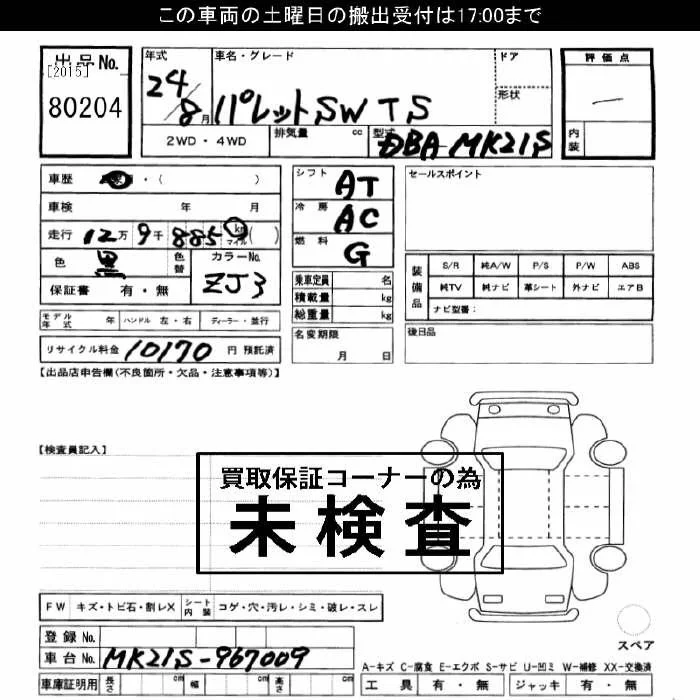 この車両の土曜日の搬出受付は17:00まで
出品No.
[2015]
80204
年式 車名・グレード ドア
24/8月 パレットSW TS
形状
評価点
―
内装
2WD・4WD 排気量 cc 型式 DBA-MK21S
車歴 ・( )
車検 年 月
走行 12万9千885 km マイル ( )
色 黒 色替 カラーNo. ZJ3
保証書 有・無
シフト AT
冷房 AC
燃料 G
乗車定員 名
積載量 kg
総重量 kg
セールスポイント
装備品 S/R 純A/W P/S P/W ABS
純TV 純ナビ 革シート 外ナビ エアB
ナビ型番:
モデル年式 年 ハンドル 左・右 ディーラー・並行
名変期限
月 日
後日品
リサイクル料金 10170 円 預託済
【出品店申告欄(不良箇所・欠品・注意事項等)】
【検査員記入】
買取保証コーナーの為
未検査
FW キズ・トビ石・割レX シート内装 コゲ・穴・汚レ・シミ・破レ・スレ
スペア
登録No.
車台No. MK21S-967009
A-キズ C-腐食 E-エクボ S-サビ U-凹ミ W-補修 XX-交換済
車庫証明用 長さ cm 幅 cm 高さ cm
工具 有・無 ジャッキ 有・無